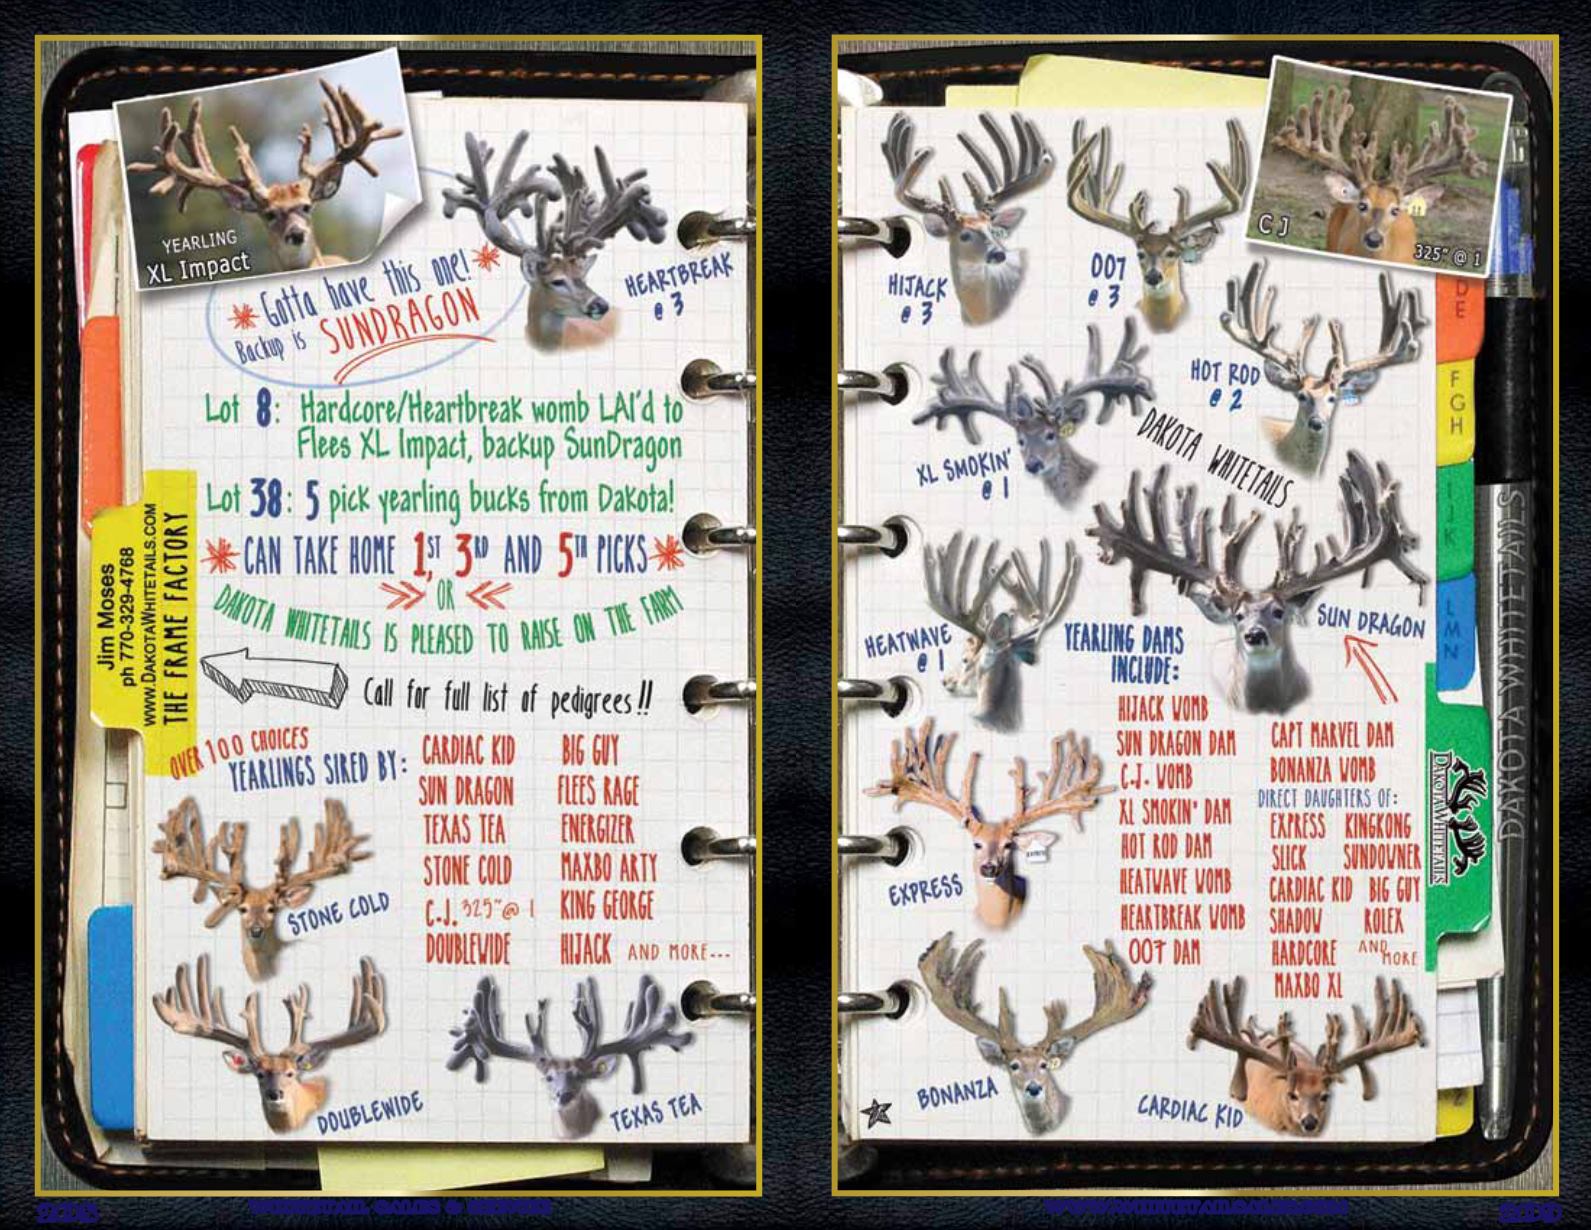 YEARLING
XL Impact
* Gotta have this one! *
Backup is SUNDRAGON
HEARTBREAK
@ 3
Lot 8: Hardcore/Heartbreak womb LAI'd to
Flees XL Impact, backup SunDragon
Lot 38: 5 pick yearling bucks from Dakota!
* CAN TAKE HOME 1ST, 3RD AND 5TH PICKS *
>> OR <<
DAKOTA WHITETAILS IS PLEASED TO RAISE ON THE FARM
Jim Moses
ph 770-329-4768
WWW.DAKOTAWHITETAILS.COM
THE FRAME FACTORY
Call for full list of pedigrees!!
OVER 100 CHOICES
YEARLINGS SIRED BY:
CARDIAC KID
SUN DRAGON
TEXAS TEA
STONE COLD
C.J. 325"@ 1
DOUBLEWIDE
BIG GUY
FLEES RAGE
ENERGIZER
MAXBO ARTY
KING GEORGE
HIJACK AND MORE...
STONE COLD
DOUBLEWIDE
TEXAS TEA
HIJACK
@ 3
007
@ 3
CJ
325" @ 1
HOT ROD
@ 2
XL SMOKIN'
@ 1
DAKOTA WHITETAILS
HEATWAVE
@ 1
SUN DRAGON
YEARLING DAMS
INCLUDE:
HIJACK WOMB
SUN DRAGON DAM
C.J. WOMB
XL SMOKIN' DAM
HOT ROD DAM
HEATWAVE WOMB
HEARTBREAK WOMB
007 DAM
CAPT MARVEL DAM
BONANZA WOMB
DIRECT DAUGHTERS OF:
EXPRESS KINGKONG
SLICK SUNDOWNER
CARDIAC KID BIG GUY
SHADOW ROLEX
HARDCORE AND MORE
MAXBO XL
EXPRESS
BONANZA
CARDIAC KID
D
E
F
G
H
I
J
K
L
M
N
Z
DAKOTA WHITETAILS
DAKOTA WHITETAILS